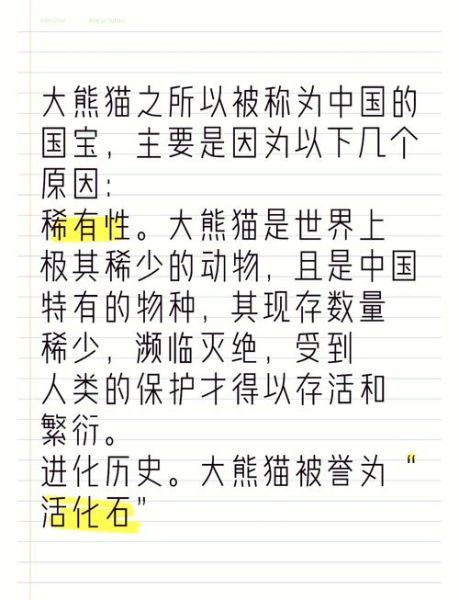 大熊猫之所以被称为中国的
国宝，主要是因为以下几个
原因：
稀有性。大熊猫是世界上
极其稀少的动物，且是中国
特有的物种，其现存数量
稀少，濒临灭绝，受到
人类的保护才得以存活和
繁衍。
进化历史。大熊猫被誉为“
活化石”